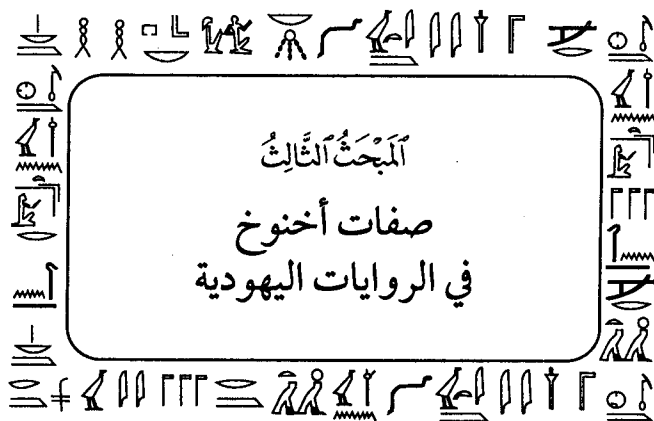 اَلْمَبْحَثُ الثَّالِثُ
صفات أخنوخ
في الروايات اليهودية